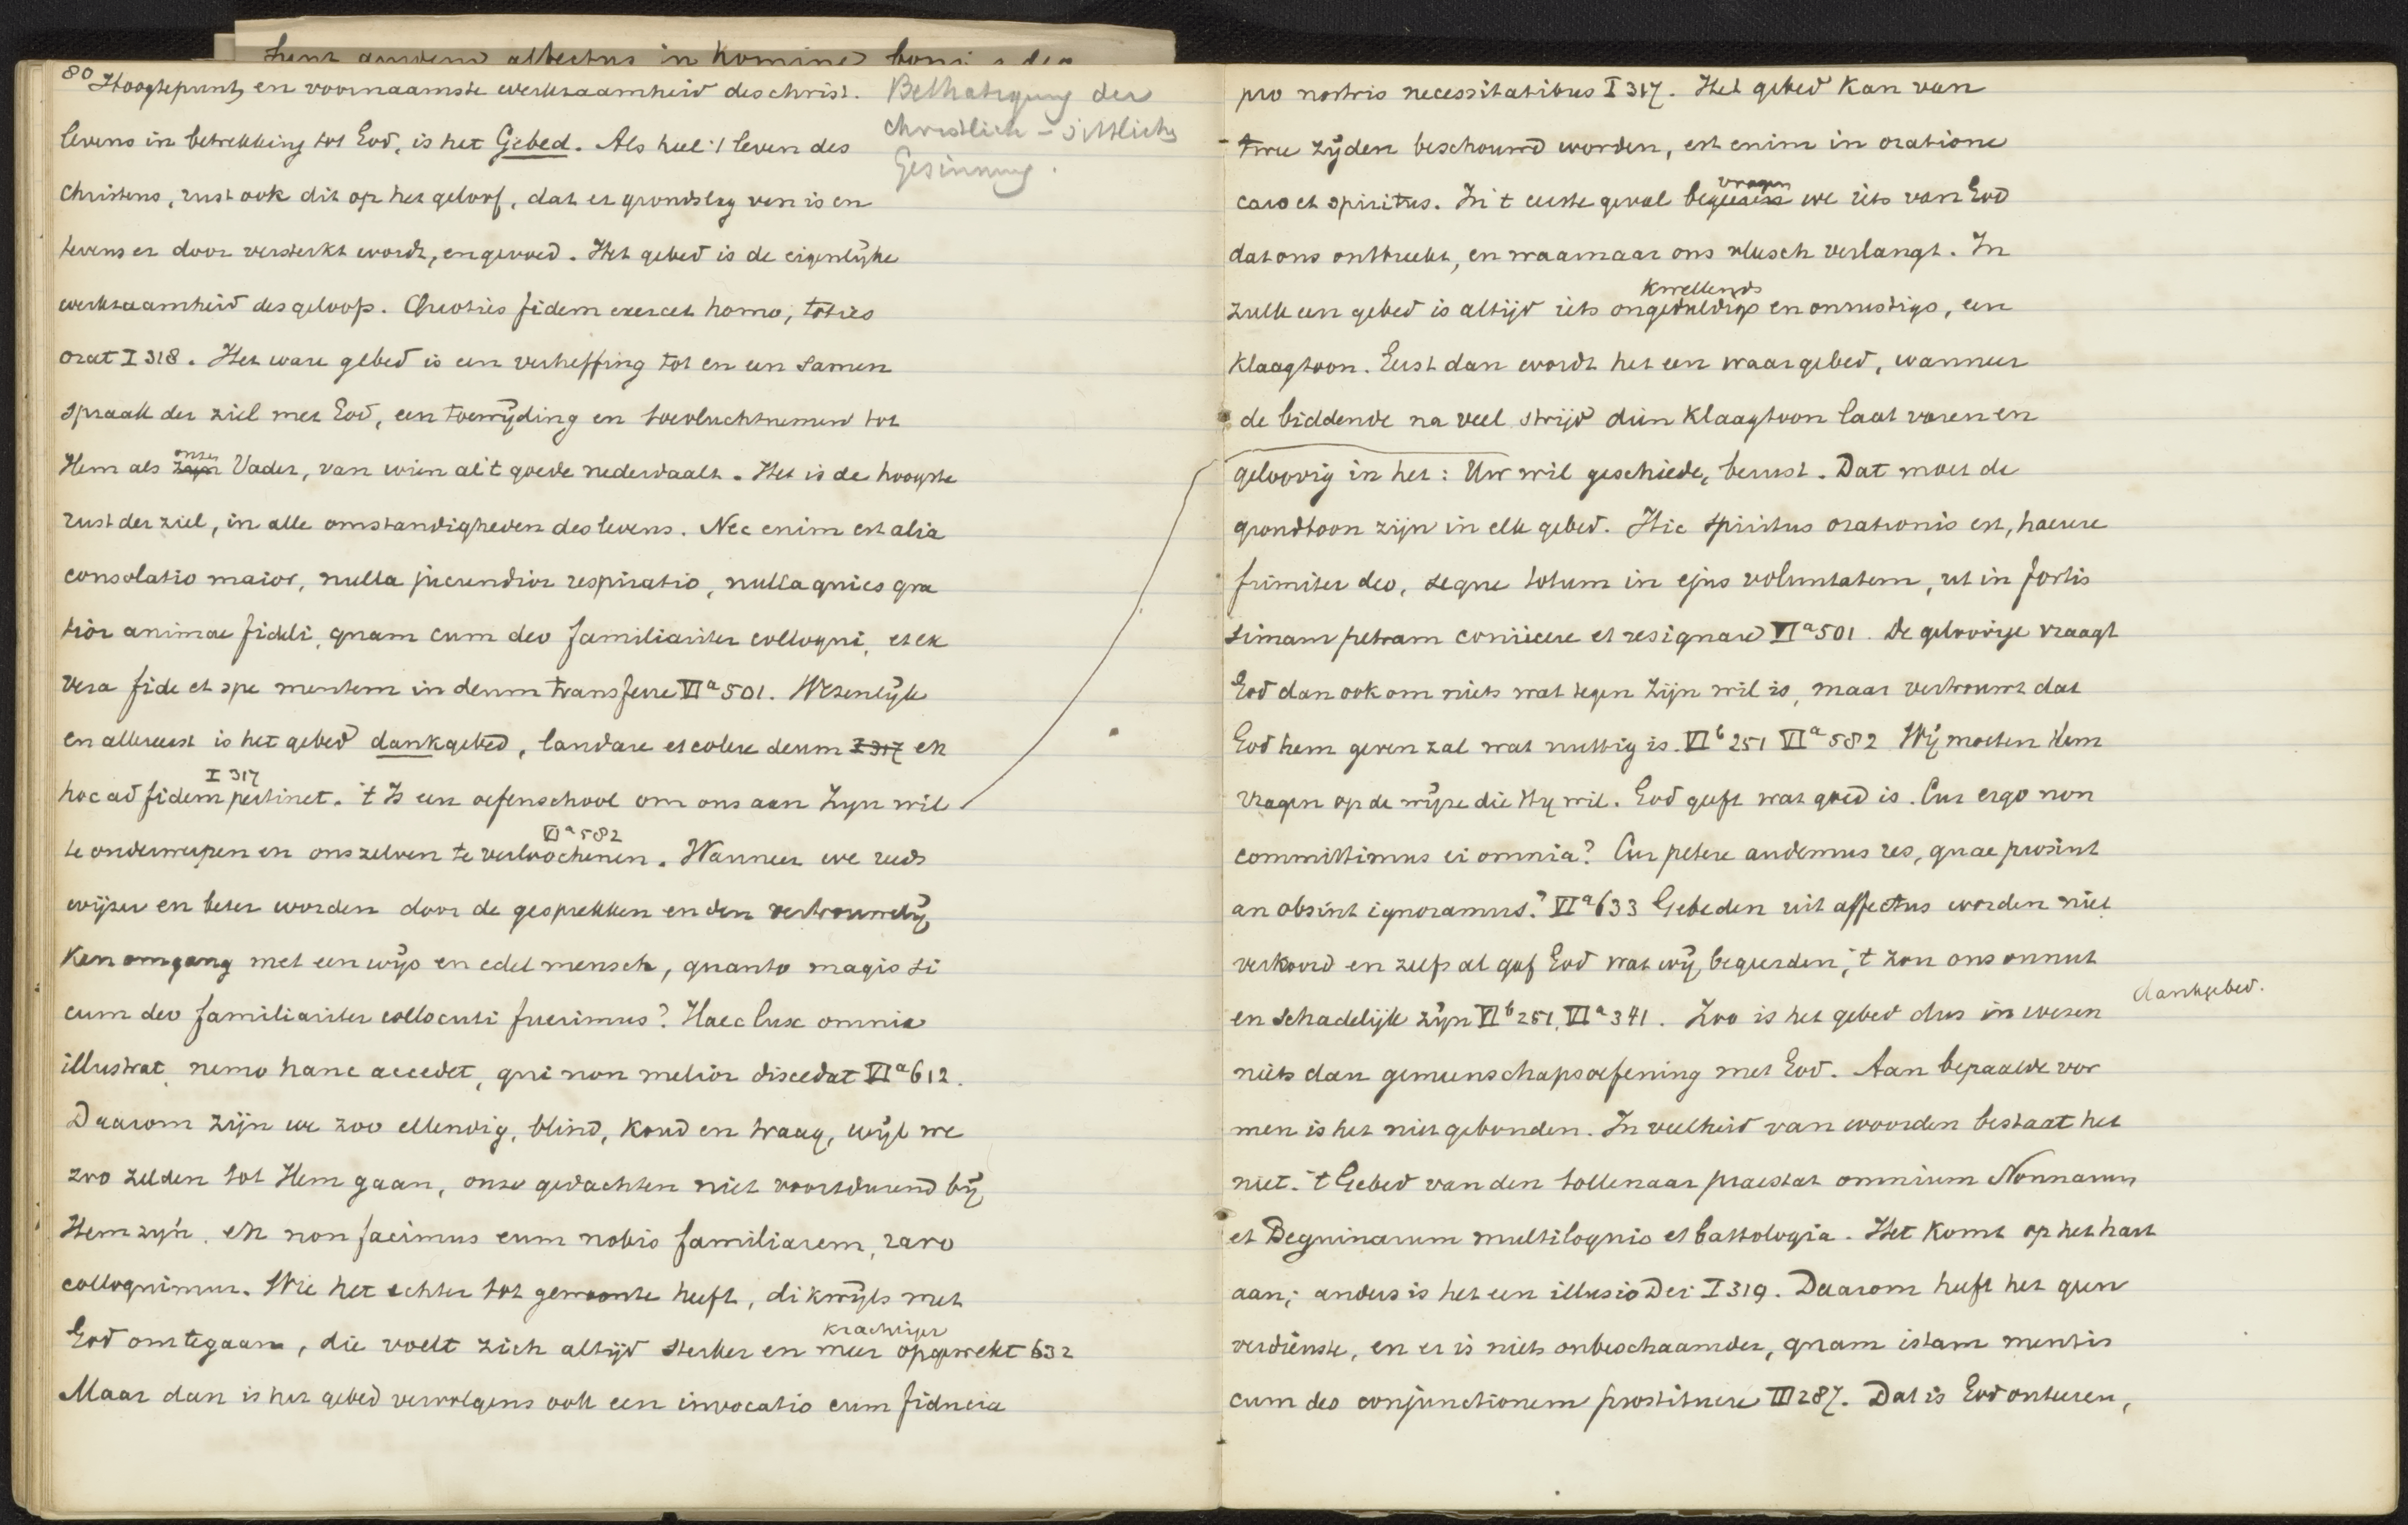 80 Hoogtepunt, en voornaamste werkzaamheid des christ.
levens in betrekking tot God, is het Gebed. Als heel 't leven des
Christens, rust ook dit op het geloof, dat er grondslag van is en
tevens er door versterkt wordt, en gevoed. Het gebed is de eigenlijke
werkzaamheid des geloofs. Quoties fidem exercet homo, toties
orat I 318. Het ware gebed is een verheffing tot en een samen
spraak der ziel met God, een toewijding en toevluchtnemen tot
Hem als zijn onzen Vader, van wien al 't goede nederdaalt. Het is de hoogste
rust der ziel, in alle omstandigheden des levens. Nec enim est alia
consolatio maior, nulla jucundior respiratio, nulla quies gra
tior animae fideli, quam cum deo familiariter colloqui, et ex
vera fide et spe mentem in deum transferre VIa 501. Wezenlijk
en allereerst is het gebed dankgebed, laudare et colere deum I 317 en
I 317
hoc ad fidem pertinet. 't Is een oefenschool om ons aan Zijn wil
VIa 582
te onderwerpen en onszelven te verloochenen. Wanneer we reeds
wijzer en beter worden door de gesprekken en den vertrouwelij
ken omgang met een wijs en edel mensch, quanto magis si
cum deo familiariter collocuti fuerimus? Haec lux omnia
illustrat, nemo hanc accedet, qui non melior discedat VIa 612.
Daarom zijn we zoo ellendig, blind, koud en traag, wijl we
zoo zelden tot Hem gaan, onze gedachten niet voortdurend bij
Hem zijn, en non facimus eum nobis familiarem, raro
colloquimur. Wie het echter tot gewoonte heeft, dikwijls met
krachtiger
God omtegaan, die voelt zich altijd sterker en meer opgewekt 632
Maar dan is het gebed vervolgens ook een invocatio cum fiducia
Bethatigung der
christlich-sittliche
Gesinnung.
pro nostris necessitatibus I 317. Het gebed kan van
twee zijden beschouwd worden, est enim in oratione
vragen
caro et spiritus. In 't eerste geval begeeren we iets van God
dat ons ontbreekt, en waarnaar ons vleesch verlangt. In
kwellends
zulk een gebed is altijd iets ongeduldigs en onrustigs, een
klaagtoon. Eerst dan wordt het een waar gebed, wanneer
de biddende na veel strijd dien klaagtoon laat varen en
geloovig in het: Uw wil geschiede, berust. Dat moet de
grondtoon zijn in elk gebed. Hic spiritus orationis est, haerere
firmiter deo, seque totum in ejus voluntatem, ut in fortis
simam petram coniicere et resignare VIa 501. De geloovige vraagt
God dan ook om niets wat tegen Zijn wil is, maar vertrouwt dat
God hem geven zal wat nuttig is. VIb 251 VIa 582 Wij moeten Hem
vragen op de wijze die Hij wil. God geeft wat goed is. Cur ergo non
committimus ei omnia? Cur petere audemus res, quae prosint
an obsint ignoramus? VIa 633 Gebeden uit affectus worden niet
verhoord en zelfs al gaf God wat wij begeerden, 't zou ons onnut
en schadelijk zijn VIb 251, VIa 341. Zoo is het gebed dus in wezen
dankgebed.
niets dan gemeenschapsoefening met God. Aan bepaalde vor
men is het niet gebonden. In veelheid van woorden bestaat het
niet. 't Gebed van den tollenaar praestat omnium Nonnarum
et Beguinarum multiloquio et battologia. Het komt op het hart
aan; anders is het een illusio Dei I 319. Daarom heeft het geen
verdienste, en er is niets onbeschaamder, quam istam mentis
cum deo conjunctionem prostituere III 287. Dat is God onteeren,